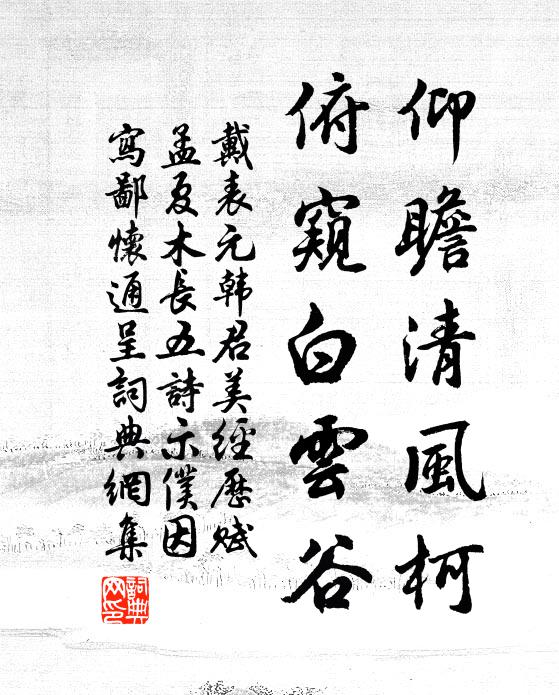 仰瞻清風柯
俯窺白雲谷
戴表元韓君美經歷賦
孟夏木長五詩示僕因
寫鄙懷通呈詞典網集
詞典
网印